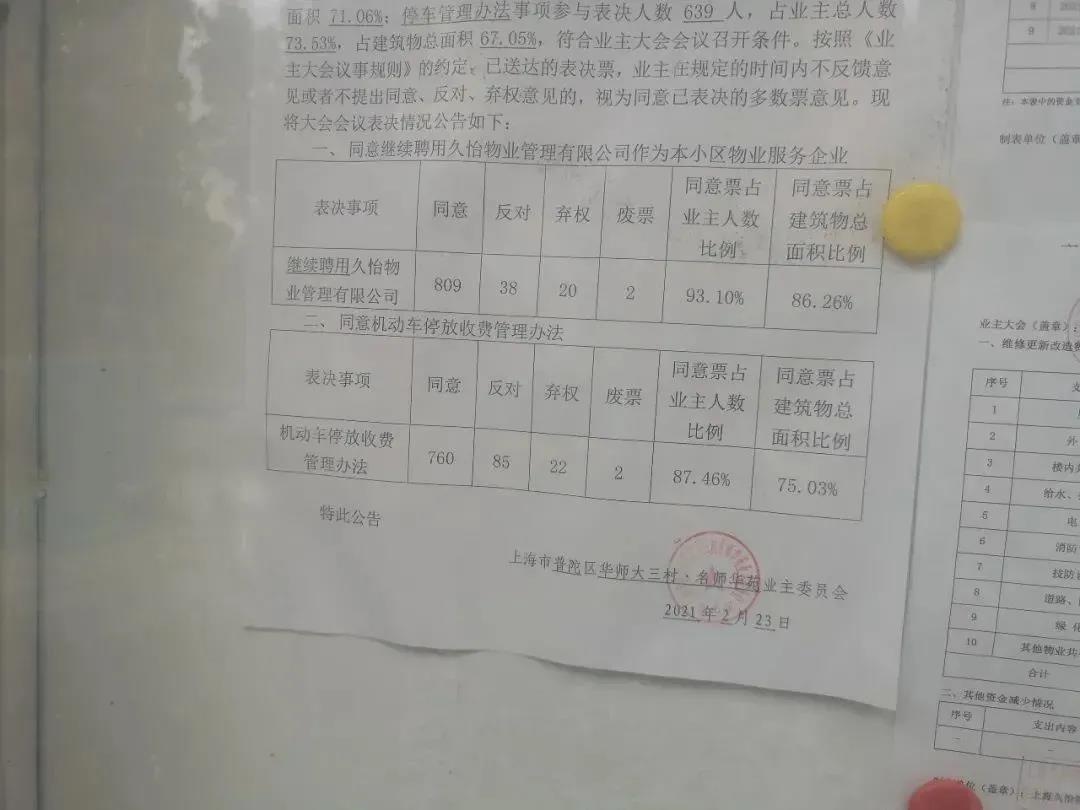 面积 71.06%；停车管理办法事项参与表决人数 639 人，占业主总人数
73.53%，占建筑物总面积 67.05%，符合业主大会会议召开条件。按照《业
主大会议事规则》的约定，已送达的表决票，业主在规定的时间内不反馈意
见或者不提出同意、反对、弃权意见的，视为同意已表决的多数票意见。现
将大会会议表决情况公告如下：
一、同意继续聘用久怡物业管理有限公司作为本小区物业服务企业
表决事项 同意 反对 弃权 废票 同意票占业主人数比例 同意票占建筑物总面积比例
继续聘用久怡物业管理有限公司 809 38 20 2 93.10% 86.26%
二、同意机动车停放收费管理办法
表决事项 同意 反对 弃权 废票 同意票占业主人数比例 同意票占建筑物总面积比例
机动车停放收费管理办法 760 85 22 2 87.46% 75.03%
特此公告
上海市普陀区华师大三村·名师华苑业主委员会
2021 年 2 月 23 日
8
9
制表单位（盖章
业主大会（盖章）：
一、维修更新改造
序号 支
1
2 外
3 楼内
4 给水、
5 电
6 消防
7 技防
8 道路、
9 绿化
10 其他物业共
合计
二、其他资金减少情况
序号 支出内容
- -
单位（盖章）：上海久怡